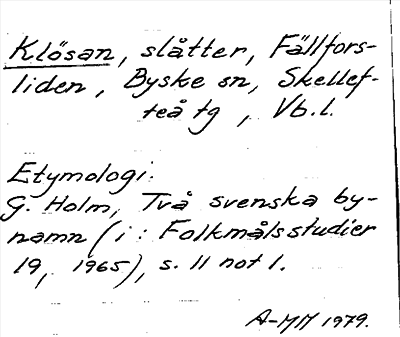 Klösan, slåtter, Fällfors-
liden, Byske sn, Skellef-
teå tg, Vb.l.
Etymologi:
G. Holm, Två svenska by-
namn (i: Folkmålsstudier
19, 1965), s. 11 not 1.
A-MM 1979.